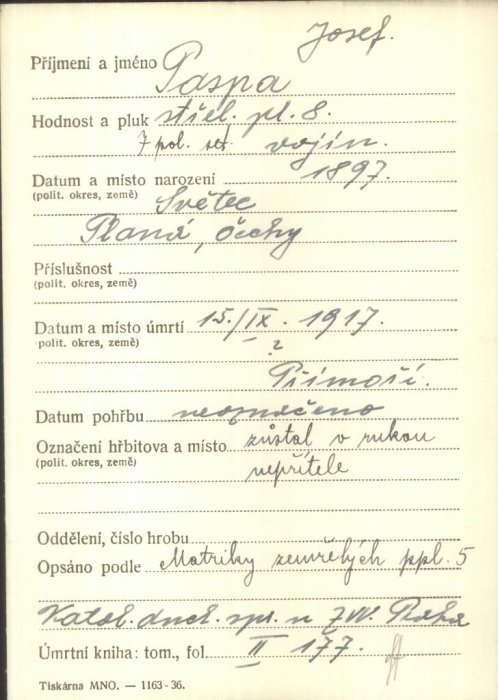 Josef.
Příjmení a jméno Paspa
Hodnost a pluk střel. pl. 8.
7 pol. set. vojín.
Datum a místo narození 1897.
(polit. okres, země) Světec
Planá, Čechy
Příslušnost
(polit. okres, země)
Datum a místo úmrtí 15./IX. 1917.
(polit. okres, země) ?
Přímoří.
Datum pohřbu neoznačeno
Označení hřbitova a místo zůstal v rukou
(polit. okres, země) nepřítele
Oddělení, číslo hrobu
Opsáno podle Matriky zemřelých ppl. 5
Katol. duch. spr. u ZVV. Praha
Úmrtní kniha: tom., fol. II 177.
Tiskárna MNO. — 1163-36.